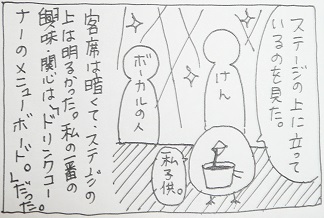 ステージの上に立って
いるのを見た。
けん
ボーカルの人
私子供。
客席は暗くて、ステージの
上は明るかった。私の一番の
興味・関心は「ドリンクコー
ナーのメニューボード。」だった。